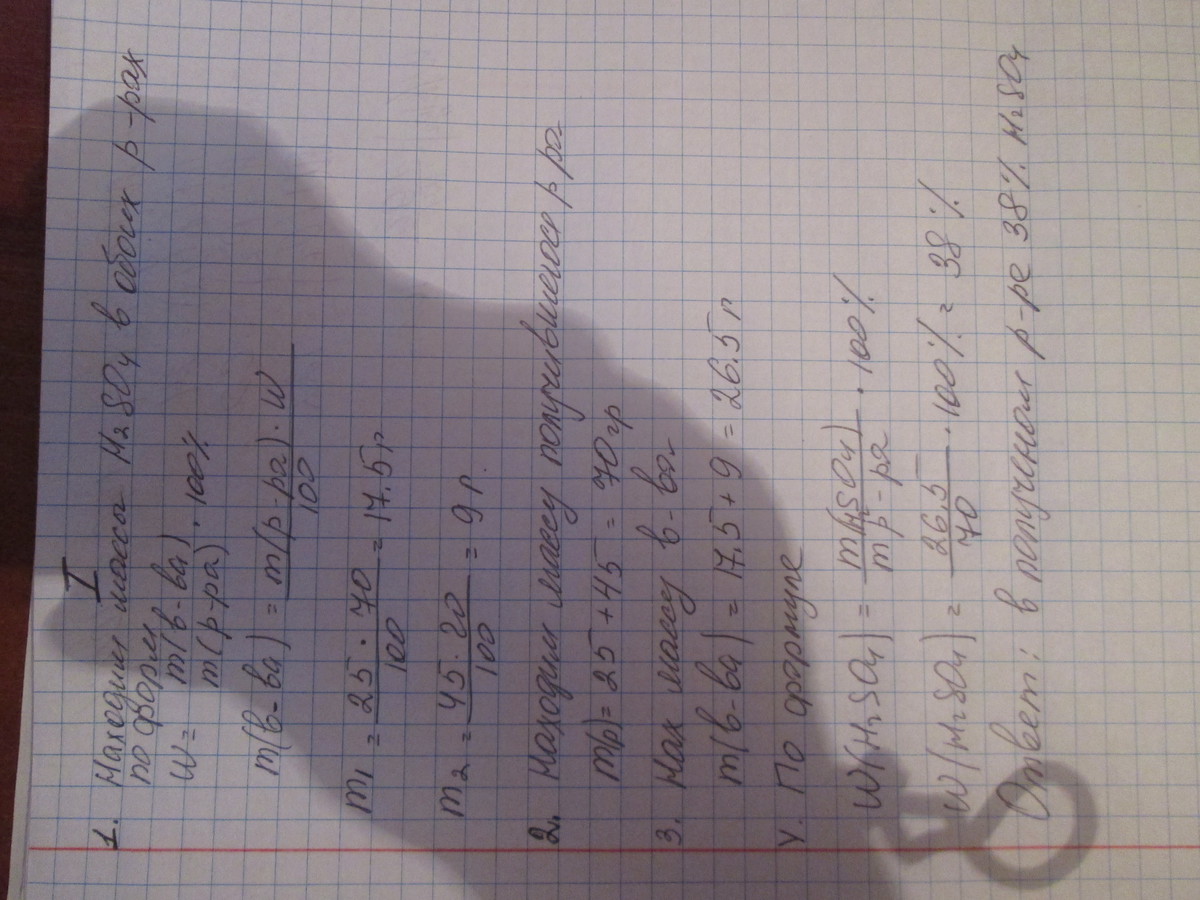 I
1. Находим масса H₂SO₄ в обоих р-рах
по форм
W = m(в-ва) / m(р-ра) · 100%
m(в-ва) = m(р-ра) · W / 100
m₁ = 25 · 70 / 100 = 17.5 г
m₂ = 45 · 20 / 100 = 9 г.
2. Находим массу получившегося р ра
m(р) = 25 + 45 = 70 гр
3. Нах массу в-ва
m(в-ва) = 17.5 + 9 = 26.5 г
4. По формуле
W(H₂SO₄) = m(H₂SO₄) / m р-ра · 100%
W(H₂SO₄) = 26.5 / 70 · 100% = 38%
Ответ: в полученом р-ре 38% H₂SO₄